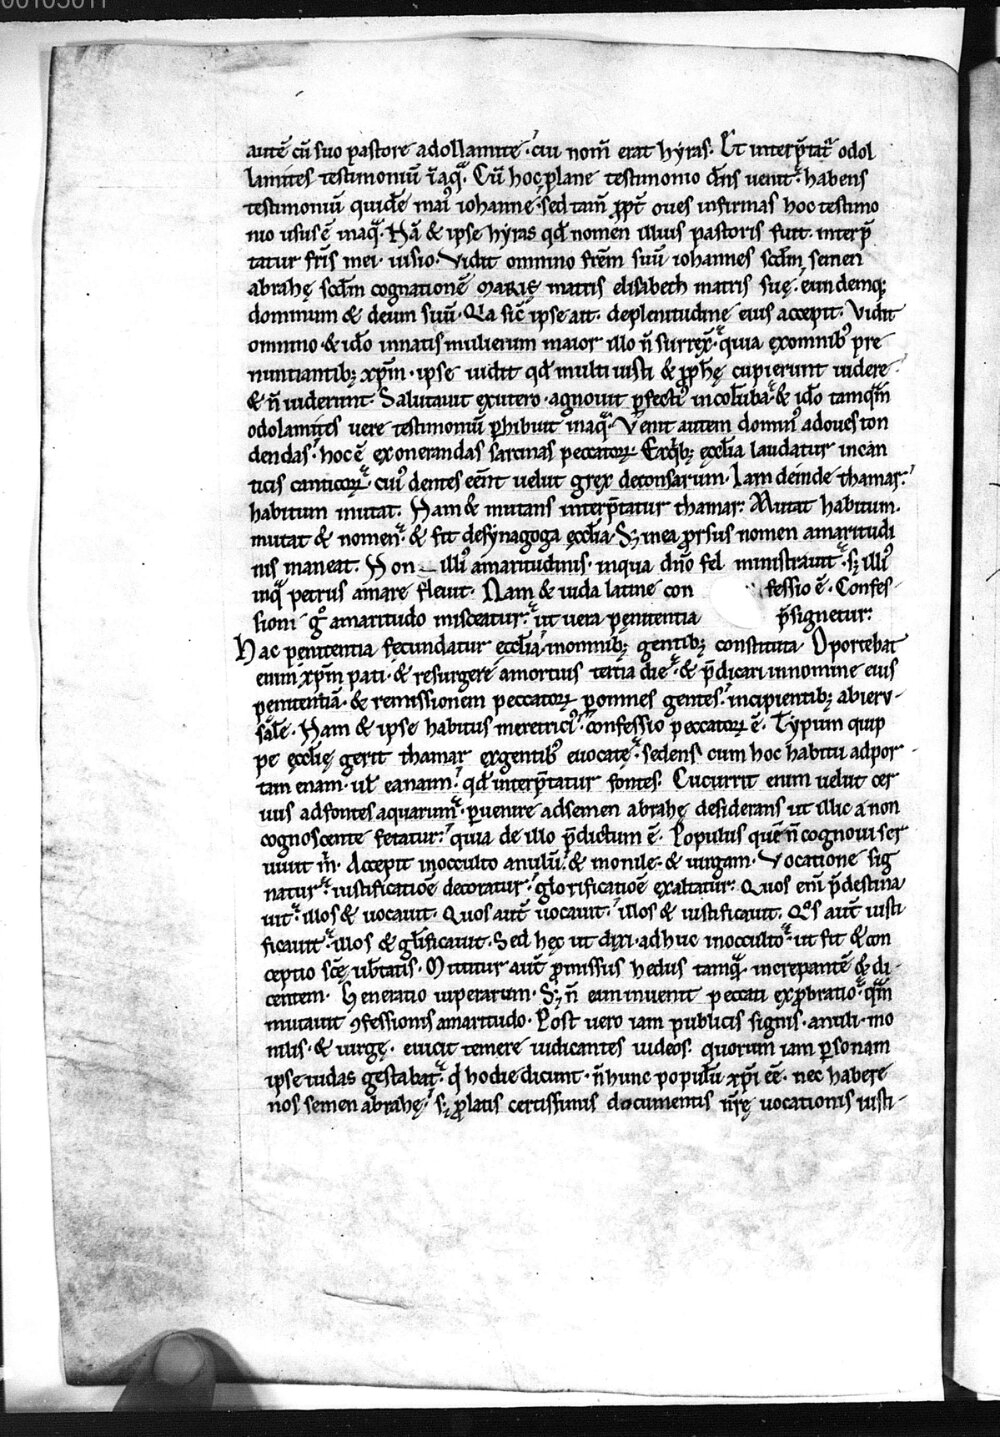 autē cū suo pastore adollamite. cui nom̄ erat hyras. Et interp̄tat̄ odol
lamites testimoniū ī aq̄. Cū hoc plane testimonio dn̄s uenit. habens
testimoniū quidē mai⁹ iohanne. sed tam̄ ꝓpt̄ oues infirmas hoc testimo
nio usus ē in aq̄. Nā & ipse hyras qd̄ nomen illius pastoris fuit. interp̄
tatur fr̄is mei uisio. Vidit omnino frēm suū iohannes scd̄m semen
abrahę scd̄m cognationē MARIE matris elisabeth matris suę. eundemq;
dominum & deum suū. Q̄a sic̄ ipse ait. de plenitudine eius accepit. Vidit
omnino. & id̄o in natis mulierum maior illo n̄ surrex̄. quia ex omnib⁹ pre
nuntiantib; xp̄m. ipse uidit qd̄ multi iusti & ꝓphę cupierunt uidere
& n̄ uiderunt. Salutauit ex utero. agnouit ꝑfecti⁹ in colūba. & id̄o tamq̄m
odolamites uere testimoniū ꝑhibuit in aq̄. Venit autem domin⁹ ad oues ton
dendas. hoc ē exonerandas sarcinas peccatoꝝ. Ex q̄b; ęccl̄ia laudatur in can
ticis canticoꝝ. cui⁹ dentes eēnt uelut grex detonsarum. Iam deinde thamar
habitum mutat. Nam & mutans interp̄tatur thamar. Mutat habitum.
mutat & nomen. & fit de synagoga ęccl̄ia. S; in ea ꝓrsus nomen amaritudi
nis maneat. Non illi⁹ amaritudinis. in qua dn̄o fel ministrauit. s; illi⁹
in q̄ petrus amare fleuit. Nam & iuda latine con fessio ē. Confes
sioni g̊ amaritudo misceatur. ut uera pęnitentia p̄signetur.
Hac pęnitentia fecundatur ęccl̄ia. in omnib; gentib; constituta. Oportebat
enim xp̄m pati. & resurgere a mortuis tertia die. & p̄dicari in nomine eius
pęnitentiā. & remissionem peccatoꝝ ꝑ omnes gentes. incipientib; ab ieru
salē. Nam & ipse habitus meretrici⁹. confessio peccatoꝝ ē. Typum quip
pe ęccl̄ię gerit thamar ex gentib⁹ euocatę. sedens cum hoc habitu ad por
tam enam. ul̄ eanaim. qd̄ interp̄tatur fontes. Cucurrit enim uelut cer
uus ad fontes aquarum. ꝑuenire ad semen abrahę desiderans ut illic a non
cognoscente fetatur. quia de illo p̄dictum ē. Populus quē n̄ cognoui ser
uiuit m̄. Accepit in occulto anulū. & monile. & uirgam. Vocatione sig
natur. iustificatiōe decoratur. glorificatiōe exaltatur. Quos eni᷑ p̄destina
uit. illos & uocauit. Quos aut̄ uocauit. illos & iustificauit. Q̊s aut̄ iusti
ficauit. illos & gl̄ificauit. Sed hęc ut dixi. adhuc in occulto. ut fit & con
ceptio sc̄ę ub̄tatis. Mittitur aut̄ ꝓmissus hedus tamq̄. increpantē & di
centem. Generatio uiperarum. S; n̄ eam inuenit peccati exꝓbratio. q̄m
mutauit ꝯfessionis amaritudo. Post uero iam publicis signis. anuli. mo
nilis. & uirgę. euicit temere iudicantes iudeos. quorum iam ꝑsonam
ipse iudas gestabat. q̇ hodie dicunt. n̄ hunc populū xp̄i eē. nec habere
nos semen abrahę. s; ꝓlatis certissimis documentis nr̄ę uocationis iusti